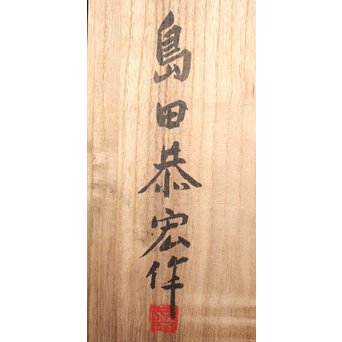 島田恭宏作